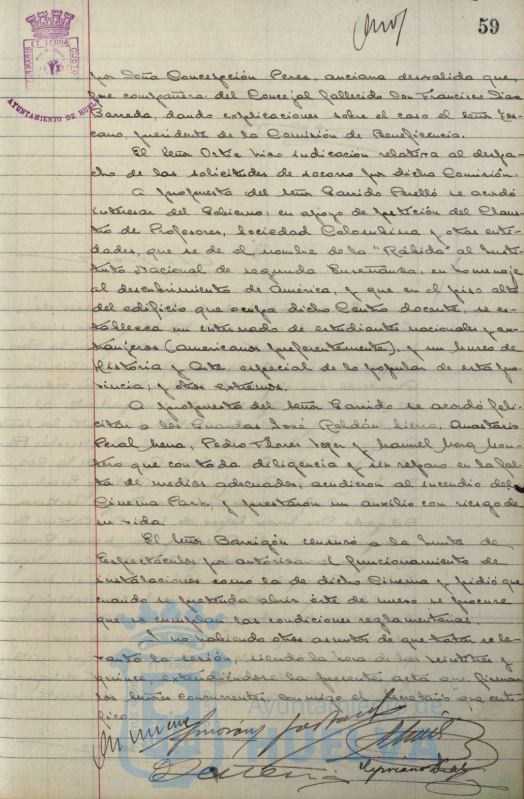 59
AYUNTAMIENTO DE HUELVA
por Doña Concepción Perea, anciana desvalida que
fue compañera del Concejal fallecido Don Francisco Díaz
Barreda, dando explicaciones sobre el caso el Señor
cano, presidente de la Comisión de Beneficencia.
El Señor Ortiz hizo indicación relativa al despa-
cho de las solicitudes de socorro por dicha Comisión.
A propuesta del Señor Garrido Perelló se acordó
interesar del Gobierno, en apoyo de petición del Claus-
tro de Profesores, Sociedad Colombina y otras enti-
dades, que se dé el nombre de la "Rábida" al Insti-
tuto Nacional de segunda Enseñanza, en homenaje
al descubrimiento de América, y que en el piso alto
del edificio que ocupa dicho Centro docente, se es-
tablezca un internado de estudiantes nacionales y ex-
tranjeros (americanos preferentemente), y un museo de
Historia y Arte, especial de lo popular de esta pro-
vincia; y otros extremos.
A propuesta del Señor Garrido se acordó feli-
citar a los Guardas José Roldán Sierra, Anastasio
Peral Mena, Pedro Flores y Manuel
que con toda diligencia y sin reparo en la fal-
ta de medios adecuados, acudieron al incendio del
Cinema Park, y prestaron su auxilio con riesgo de
su vida.
El Señor Barrigón censuró a la Junta de
Espectáculos por autorizar el funcionamiento de
instalaciones como la de dicho Cinema y pidió que
cuando se pretenda abrir éste de nuevo se procure
que se cumplan las condiciones reglamentarias.
Y no habiendo otros asuntos de que tratar se le-
vantó la sesión, siendo la hora de las veintitres y
quince, extendiéndose la presente acta que firman
los Señores concurrentes, conmigo el Secretario que certi-
fico.
Ayuntamiento de
HUELVA